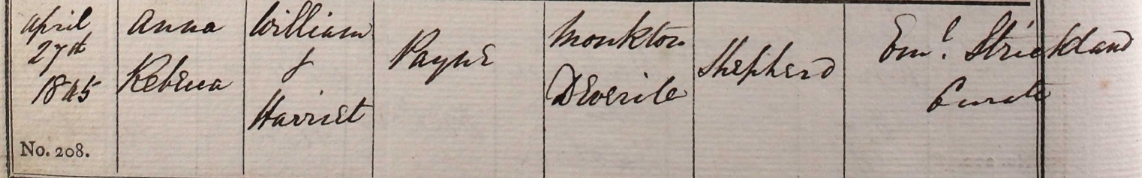 April
27th
1845
No. 208.
Anna
Rebecca
William
&
Harriet
Payne
Monkton
Deverile
Shepherd
Eml. Strickland
Curate